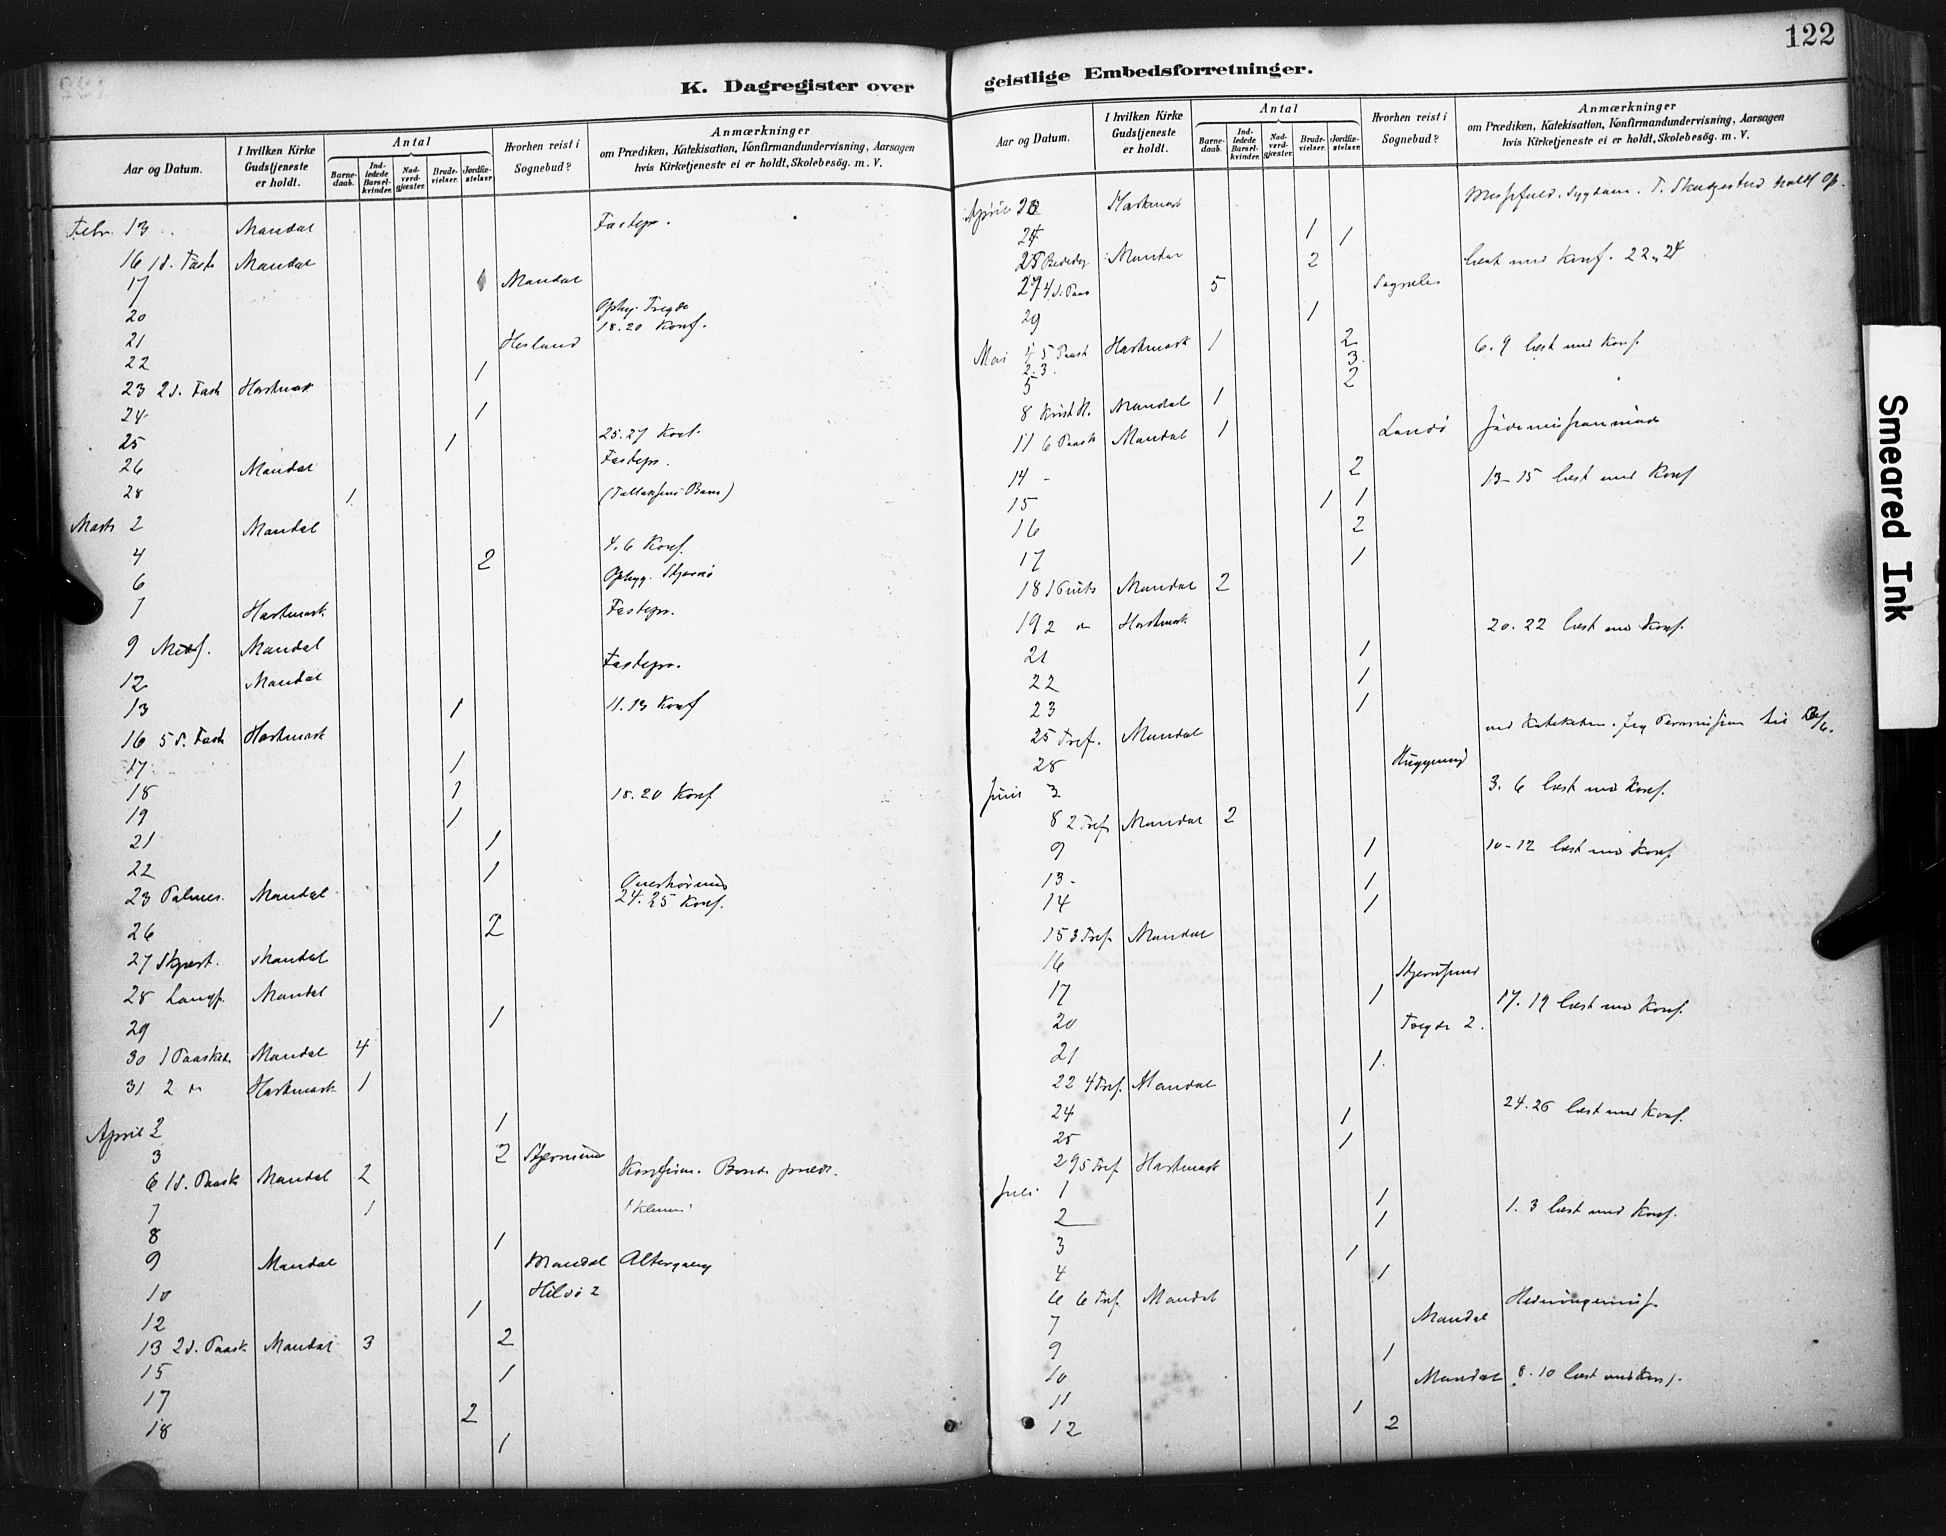 122
K. Dagregister over
Aar og Datum.
I hvilken Kirke Gudstjeneste er holdt.
Antal
Barne-daab.
Ind-ledede Barsel-kvinder.
Nad-verd-gjæster.
Brude-vielser.
Jordfæ-stelser.
Hvorhen reist i Sognebud?
Anmærkninger
om Prædiken, Katekisation, Konfirmandundervisning, Aarsagen
hvis Kirketjeneste ei er holdt, Skolebesøg. m. V.
Febr. 13 Mandal Fastepr.
16 1 S. Fast Mandal
17 Mandal
20 Opbyg. Tregde
18. 20 Konf.
21 Hesland
22 1
23 2 S. Fast Hartmark
24 1
25 1 25. 27 Konf.
26 Mandal Fastepr.
28 1
Marts 2 Mandal
4 2 4. 6 Konf.
6 Opbyg.
7 Hartmark Fastepr.
9 Mandal
12 Mandal Fastepr.
13 1 11. 13 Konf
16 5 S. Fast Hartmark
17 1
18 1 18. 20 Konf
19 1
21 1
22 1
23 Palmes. Mandal
24. 25 Konf.
26 2
27 Skjært. Mandal
28 Langf. Mandal
29 1
30 1 Paaskd. Mandal 4
31 2 " Hartmark 1
April 2 1
3 2
6 1 S. Paask Mandal 2
7 1
8 1
9 Mandal Mandal Altergang
10 Hilsø 2
12 1
13 2 S. Paask Mandal 3 2
15 1
17 2
18 1
geistlige Embedsforretninger.
Aar og Datum.
I hvilken Kirke Gudstjeneste er holdt.
Antal
Barne-daab.
Ind-ledede Barsel-kvinder.
Nad-verd-gjæster.
Brude-vielser.
Jordfæ-stelser.
Hvorhen reist i Sognebud?
Anmærkninger
om Prædiken, Katekisation, Konfirmandundervisning, Aarsagen
hvis Kirketjeneste ei er holdt, Skolebesøg. m. V.
April 20 Hartmark
24 1 1
25 Bededag Mandal 2 læst med Konf. 22, 24
27 4 S. Paas 5
29 1
Mai 4 5 Paask Hartmark 1 2 6. 9 læst med Konf.
2. 3. 3
5 2
8 Krist H. Mandal 1
11 6 Paask Mandal 1 Landø
14 2 13-15 læst med Konf
15 1 1
16 2
17 1
18 1 Mandal 2
19 2 " Hartmark 20. 22 læst med Konf.
21 1
22 1
23 1
25 Tref. Mandal
28
Juni 3 3. 6 læst med Konf.
8 2 Tref Mandal 2
9 1 10-12 læst med Konf
13 1
14 1
15 3 Tref. Mandal
16
17 1 17. 19 læst med Konf.
20 Tregde 2.
21 1.
22 4 Tref. Mandal
24 1 24. 26 læst med Konf.
25 1
29 5 Tref Hartmark
Juli 1 1 1. 3 læst med Konf.
2 1
3 1
4 1
6 6 Tref. Mandal
7 Mandal
9 1
10 Mandal 8. 10 læst med Konf.
11 1
12 2
Smeared Ink